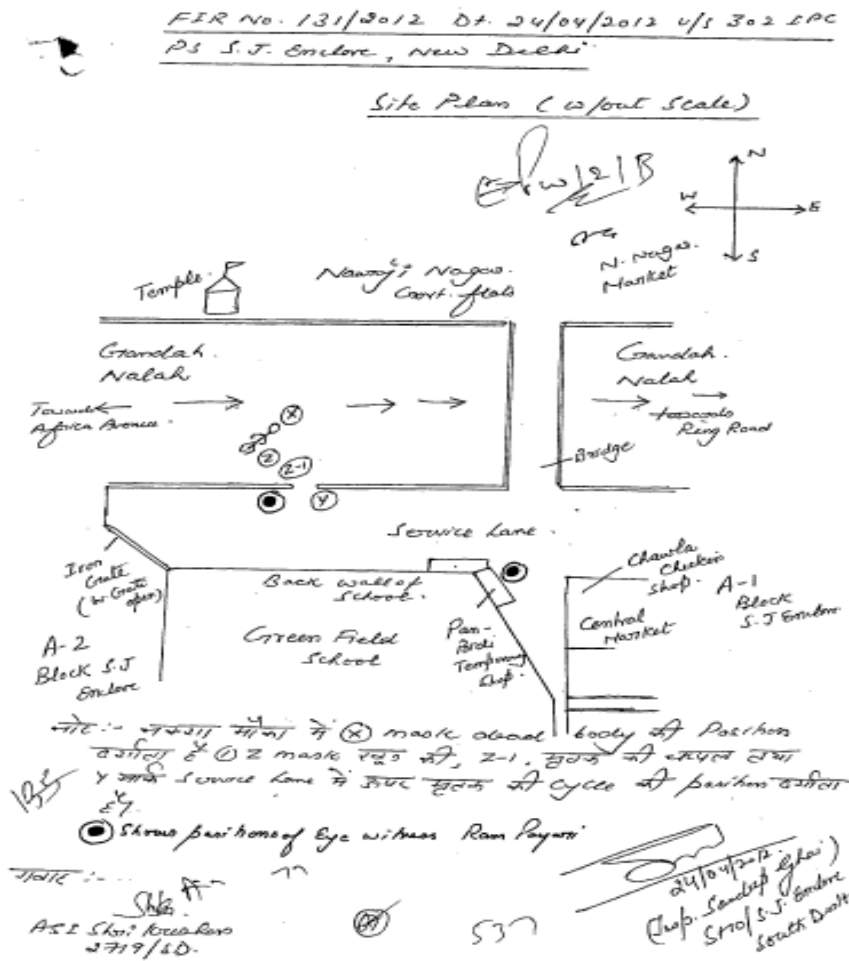 FIR No. 131/2012 Dt. 24/04/2012 u/s 302 IPC
PS S.J. Enclave, New Delhi
Site Plan (w/out Scale)
N
W
E
S
N. Nagar
Market
Temple
Nawroji Nagar
Govt. flats
Gandah
Nalah
Gandah
Nalah
Towards
Africa Avenue
towards
Ring Road
X
Z
Z-1
Y
Bridge
Service Lane
Iron
Gate
(W-Gate
open)
Back wall of
School
Chawla
Chicken
Shop
A-1
Block
S.J Enclave
Central
Market
A-2
Block S.J
Enclave
Green Field
School
Pan-
Bidi
Temporary
Shop
नोट:- नक्शा मौका में X mark dead body की Position
दर्शाता है Z mark खून की, Z-1, मृतक की चप्पल तथा
Y मार्क Service Lane में मृतक की cycle की position दर्शाता
है
Shows positions of Eye witness Ram Payari
गवाह :-
ASI Shri Krishan
2719/SD.
537
24/04/2012
(Insp. Sandeep Ghai)
SHO/S.J. Enclave
South Distt